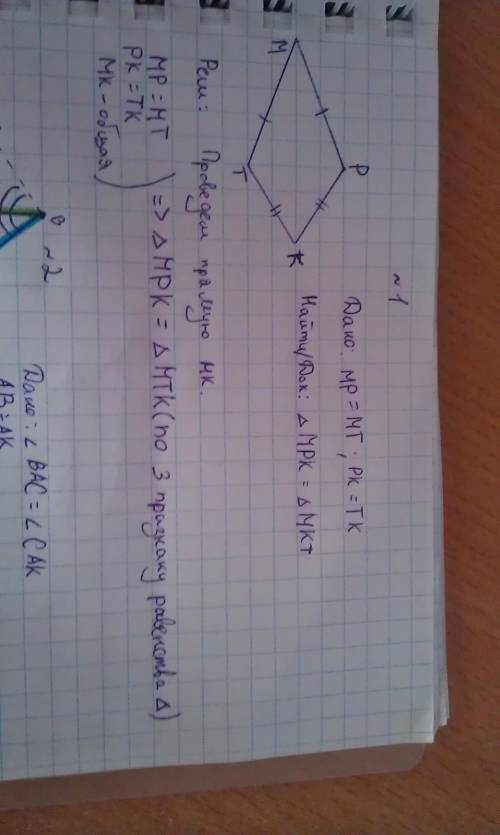 ~1
M
P
T
K
Дано: MP = MT; PK = TK
Найти/Док: △ MPK = △ MKT
Реш: Проведем прямую MK.
MP = MT
PK = TK
MK - общая
=> △ MPK = △ MTK (по 3 признаку равенства △)
~2
B
Дано: ∠ BAC = ∠ CAK
AB = AK